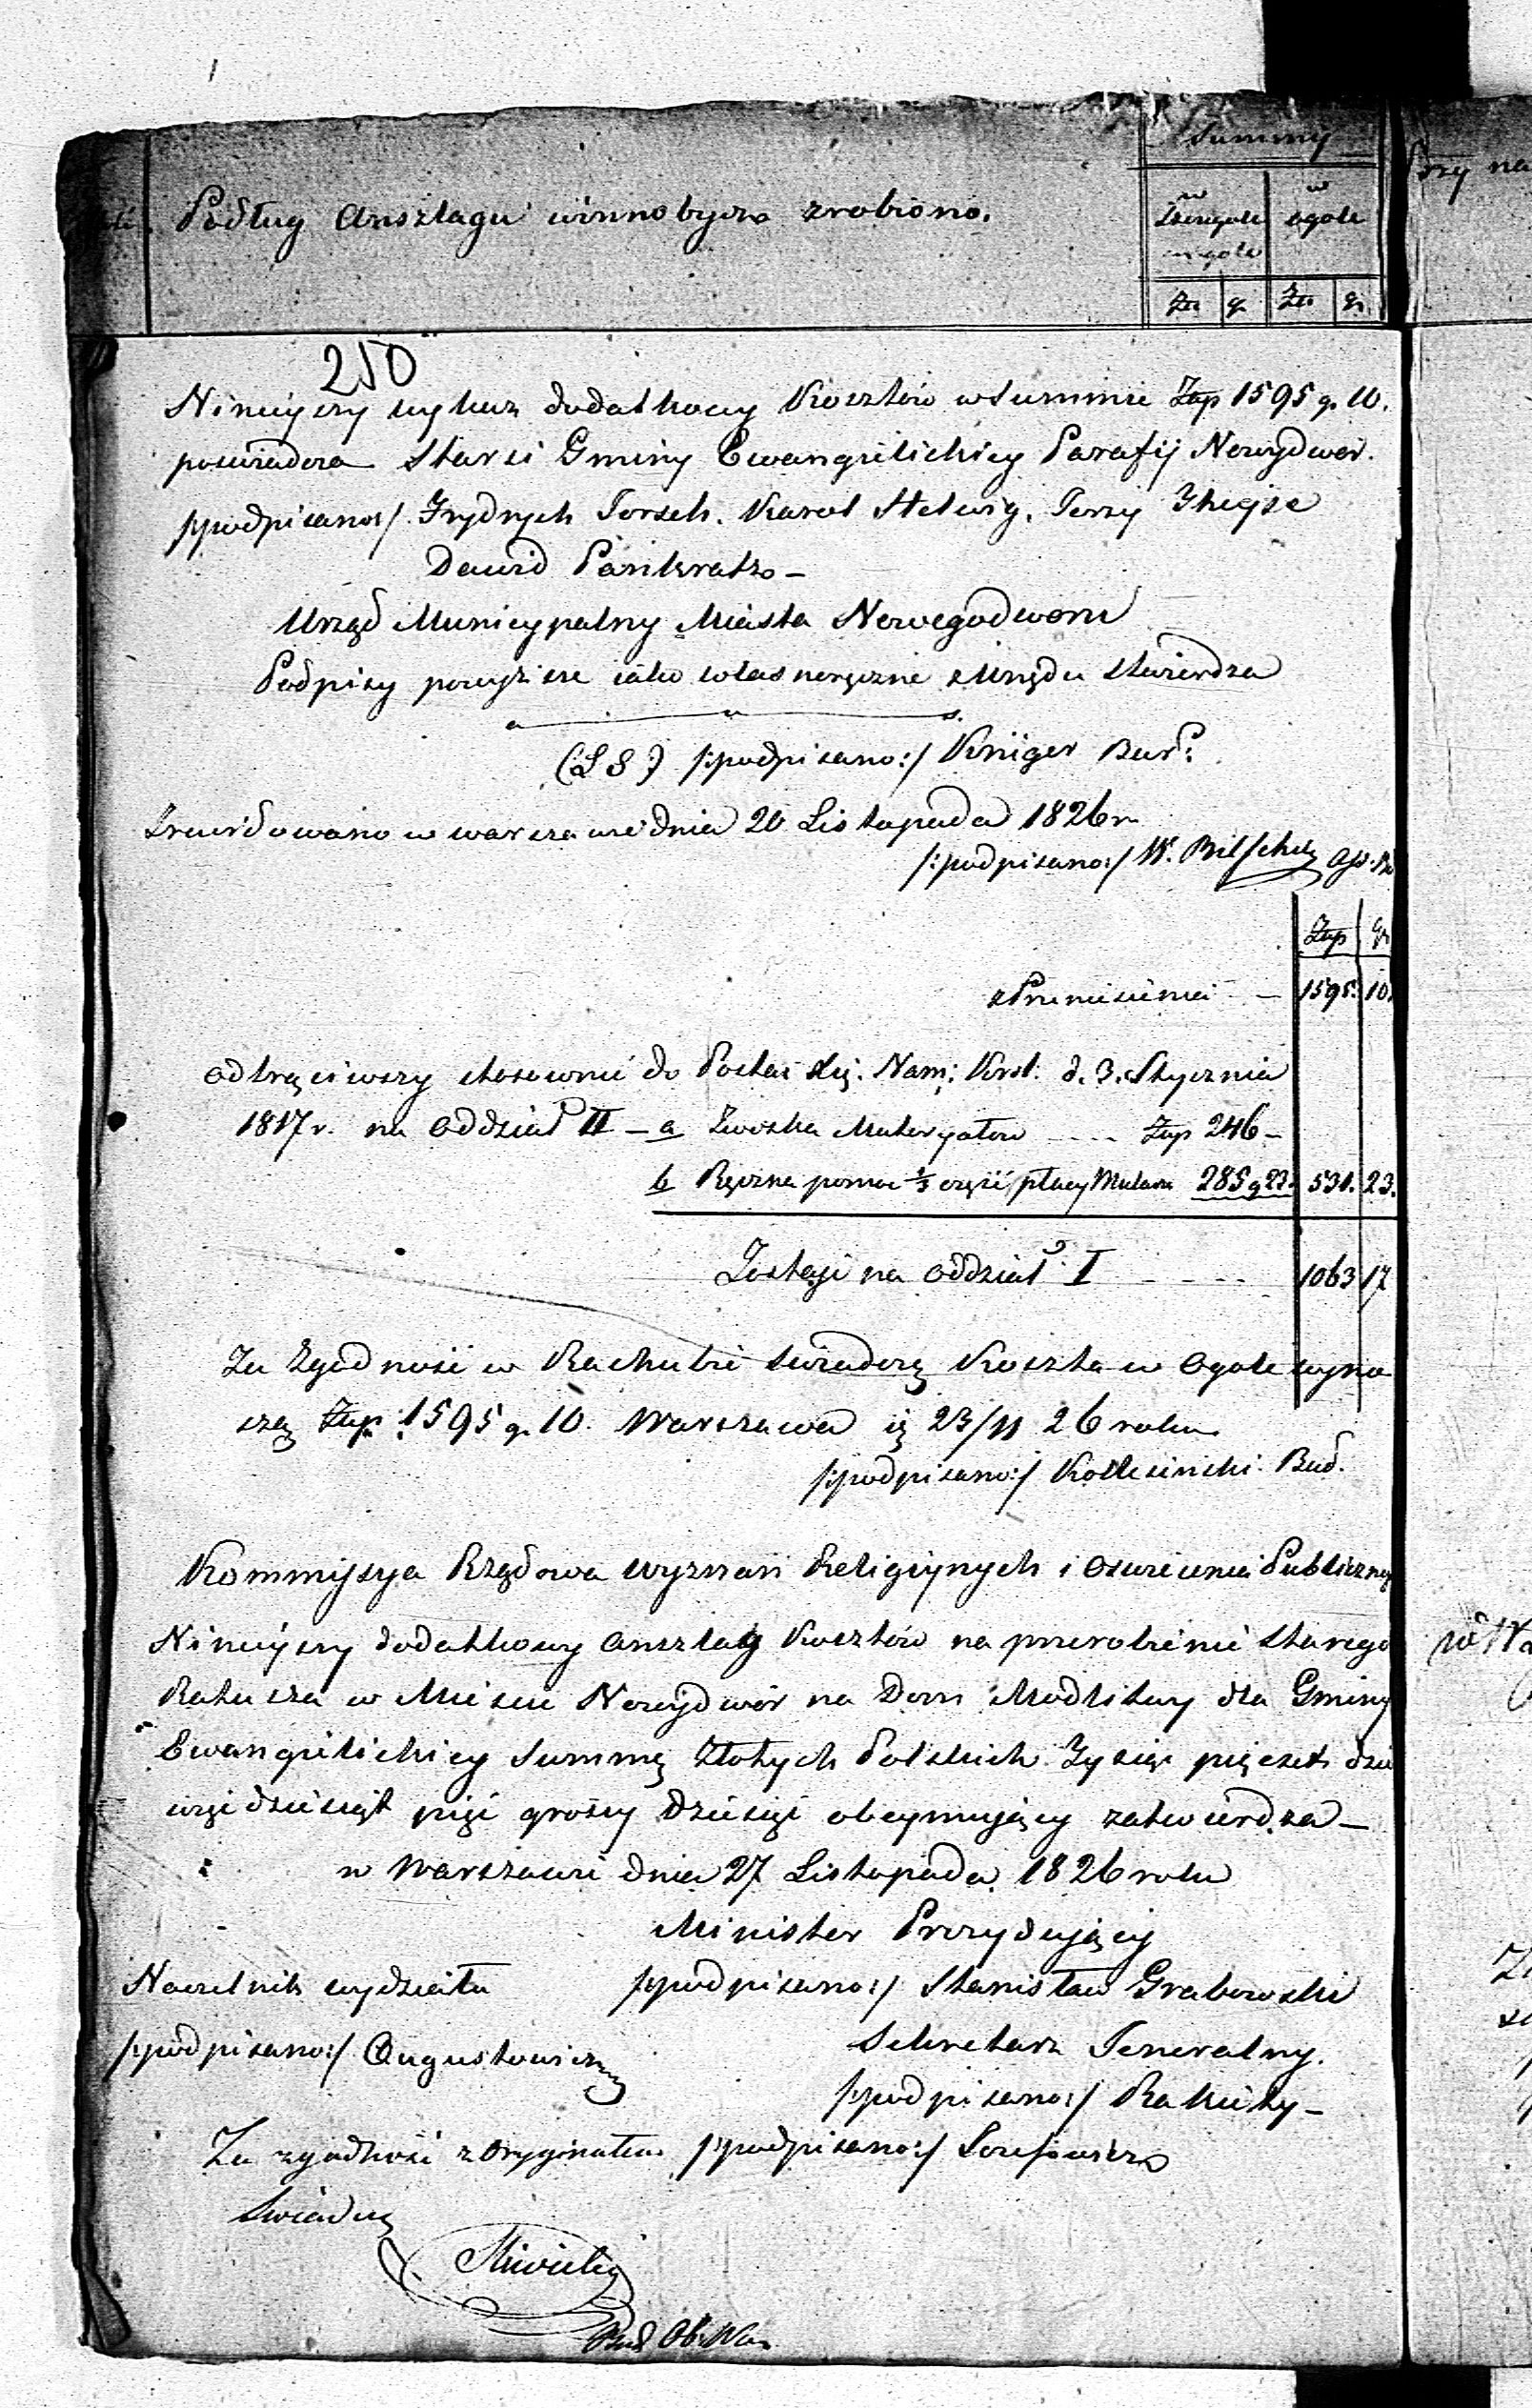 Summy
Podług Anszlagu winno bydź zrobiono.
w Szczególe
w ogóle
Zł g Zł gr
250
Nineyszy wykaz dodatkowy Kosztów w Summie Złp 1595 g. 10.
poswiadcza Starsi Gminy Ewangelickiey Parafij Nowydwór.
/:podpisano:/ Frydrych Jorsch. Karol Helwig. Jerzy
Dawid Pankratz –
Urząd Municypalny Miasta Nowegodworu
Podpisy powyższe iako własnoręczne z Urzędu stwierdza
(L S:) /:podpisano:/ Krüger Bur:
Zrewidowano w Warszawie dnia 20 Listopada 1826 r.
/:podpisano:/ W.
Złp gr
z Przeniesienia – 1595. 10.
odtrąciwszy stosownie do Postan: Xię. Nam: Król: d. 3. Stycznia
1817 r. na oddział II – a Zwoska Materyałow .... Złp 246 –
b Ręczna pomoc 1/3 część płacy Mular 285 g 23. 531. 23.
Zostaje na oddział I – – – – 1063 17
Za Zgodność w Rachubie świadczę Koszta w Ogole wyno
szą Złp. 1595 g. 10. Warszawa d. 23/11 26 roku
/:podpisano:/ Bud.
Kommissya Rządowa Wyznań Religiynych i Oswiecenia Publiczneg
Nineyszy dodatkowy anszlag Kosztów na przerobienie starego
Ratusza w Miescie Nowydwór na Dom Modlitwy dla Gminy
Ewangelickiey Summę Złotych Polskich Tysiąc pięcset dzie
więcdziesiąt pięc groszy dziesięc obeymujący zatwierdza –
w Warszawie dnia 27 Listopada 1826 roku
Minister Prezydujący
Naczelnik wydziału /:podpisano:/ Stanisław Grabowski
Sekretarz Jeneralny.
/:podpisano:/ Augustowicz
/:podpisano:/ Rakiety –
Za zgodność z Oryginałem /:podpisano:/ Jozefowicz
Świadczę
Bud Ob: War